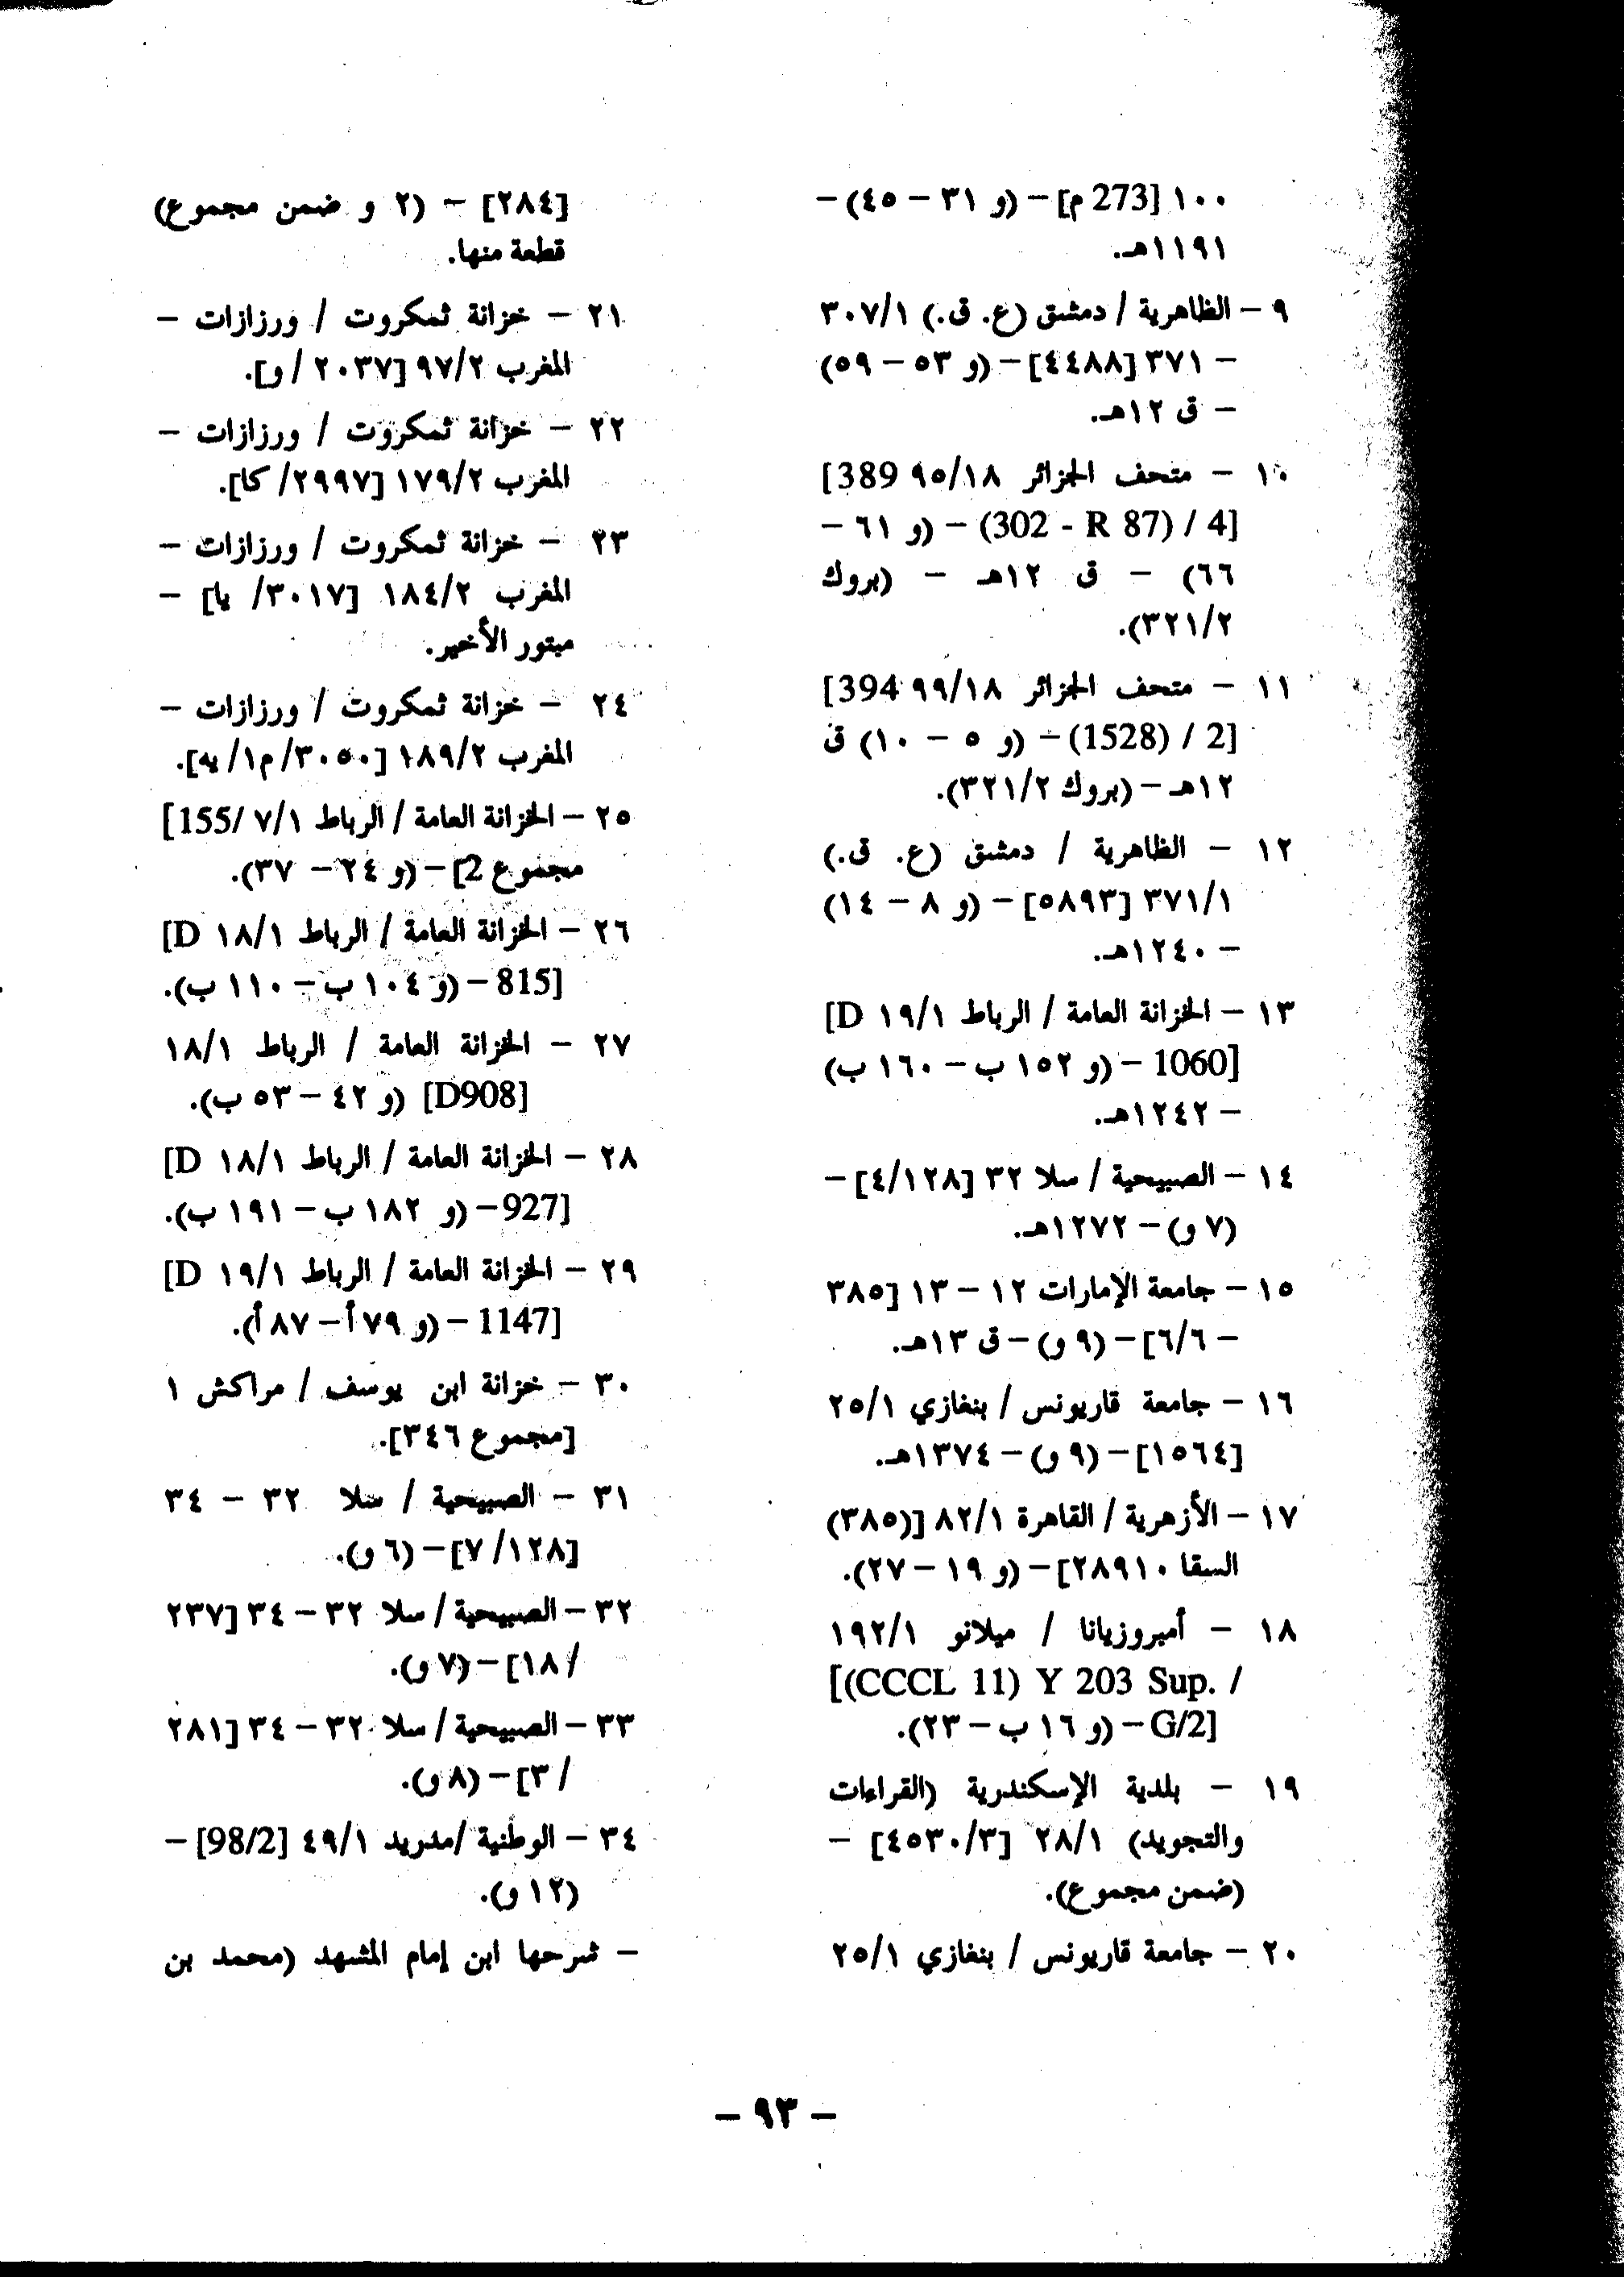 ١٠٠ [273 م] – (و ٣١ – ٤٥) –
١١٩١هـ.
٩ – الظاهرية / دمشق (ع. ق.) ٣٠٧/١
– ٣٧١ [٤٤٨٨] – (و ٥٣ – ٥٩)
– ق ١٢هـ.
١٠ – متحف الجزائر ٩٥/١٨ [389
(302 - R 87) / 4] – (و ٦١ –
٦٦) – ق ١٢هـ – (بروك
٣٢١/٢).
١١ – متحف الجزائر ٩٩/١٨ [394
(1528) / 2] – (و ٥ – ١٠) ق
١٢هـ – (بروك ٣٢١/٢).
١٢ – الظاهرية / دمشق (ع. ق.)
٣٧١/١ [٥٨٩٣] – (و ٨ – ١٤)
– ١٢٤٠هـ.
١٣ – الخزانة العامة / الرباط ١٩/١ [D
1060] – (و ١٥٢ ب – ١٦٠ ب)
– ١٢٤٢هـ.
١٤ – الصبيحية / سلا ٣٢ [٤/١٢٨] –
(٧ و) – ١٢٧٢هـ.
١٥ – جامعة الإمارات ١٢ – ١٣ [٣٨٥
– ٦/٦] – (٩ و) – ق ١٣هـ.
١٦ – جامعة قاريونس / بنغازي ٢٥/١
[١٥٦٤] – (٩ و) – ١٣٧٤هـ.
١٧ – الأزهرية / القاهرة ٨٢/١ [(٣٨٥)
السقا ٢٨٩١٠] – (و ١٩ – ٢٧).
١٨ – أمبروزيانا / ميلانو ١٩٢/١
[(CCCL 11) Y 203 Sup. /
G/2] – (و ١٦ ب – ٢٣).
١٩ – بلدية الإسكندرية (القراءات
والتجويد) ٢٨/١ [٤٥٣٠/٣] –
(ضمن مجموع).
٢٠ – جامعة قاريونس / بنغازي ٢٥/١
[٢٨٤] – (٢ و ضمن مجموع)
قطعة منها.
٢١ – خزانة ثمكروت / ورزازات –
المغرب ٩٧/٢ [٢٠٣٧ / و].
٢٢ – خزانة ثمكروت / ورزازات –
المغرب ١٧٩/٢ [٢٩٩٧/ كا].
٢٣ – خزانة ثمكروت / ورزازات –
المغرب ١٨٤/٢ [٣٠١٧/ يا] –
مبتور الأخير.
٢٤ – خزانة ثمكروت / ورزازات –
المغرب ١٨٩/٢ [٣٠٥٠/ م١/ يه].
٢٥ – الخزانة العامة / الرباط ٧/١ [155/
مجموع 2] – (و ٢٤ – ٣٧).
٢٦ – الخزانة العامة / الرباط ١٨/١ [D
815] – (و ١٠٤ ب – ١١٠ ب).
٢٧ – الخزانة العامة / الرباط ١٨/١
[D908] (و ٤٢ – ٥٣ ب).
٢٨ – الخزانة العامة / الرباط ١٨/١ [D
927] – (و ١٨٢ ب – ١٩١ ب).
٢٩ – الخزانة العامة / الرباط ١٩/١ [D
1147] – (و ٧٩ أ – ٨٧ أ).
٣٠ – خزانة ابن يوسف / مراكش ١
[مجموع ٣٤٦].
٣١ – الصبيحية / سلا ٣٢ – ٣٤
[١٢٨/ ٧] – (٦ و).
٣٢ – الصبيحية / سلا ٣٢ – ٣٤ [٢٣٧
/ ١٨] – (٧ و).
٣٣ – الصبيحية / سلا ٣٢ – ٣٤ [٢٨١
/ ٣] – (٨ و).
٣٤ – الوطنية /مدريد ٤٩/١ [98/2] –
(١٢ و).
– شرحها ابن إمام المشهد (محمد بن
– ٩٣ –